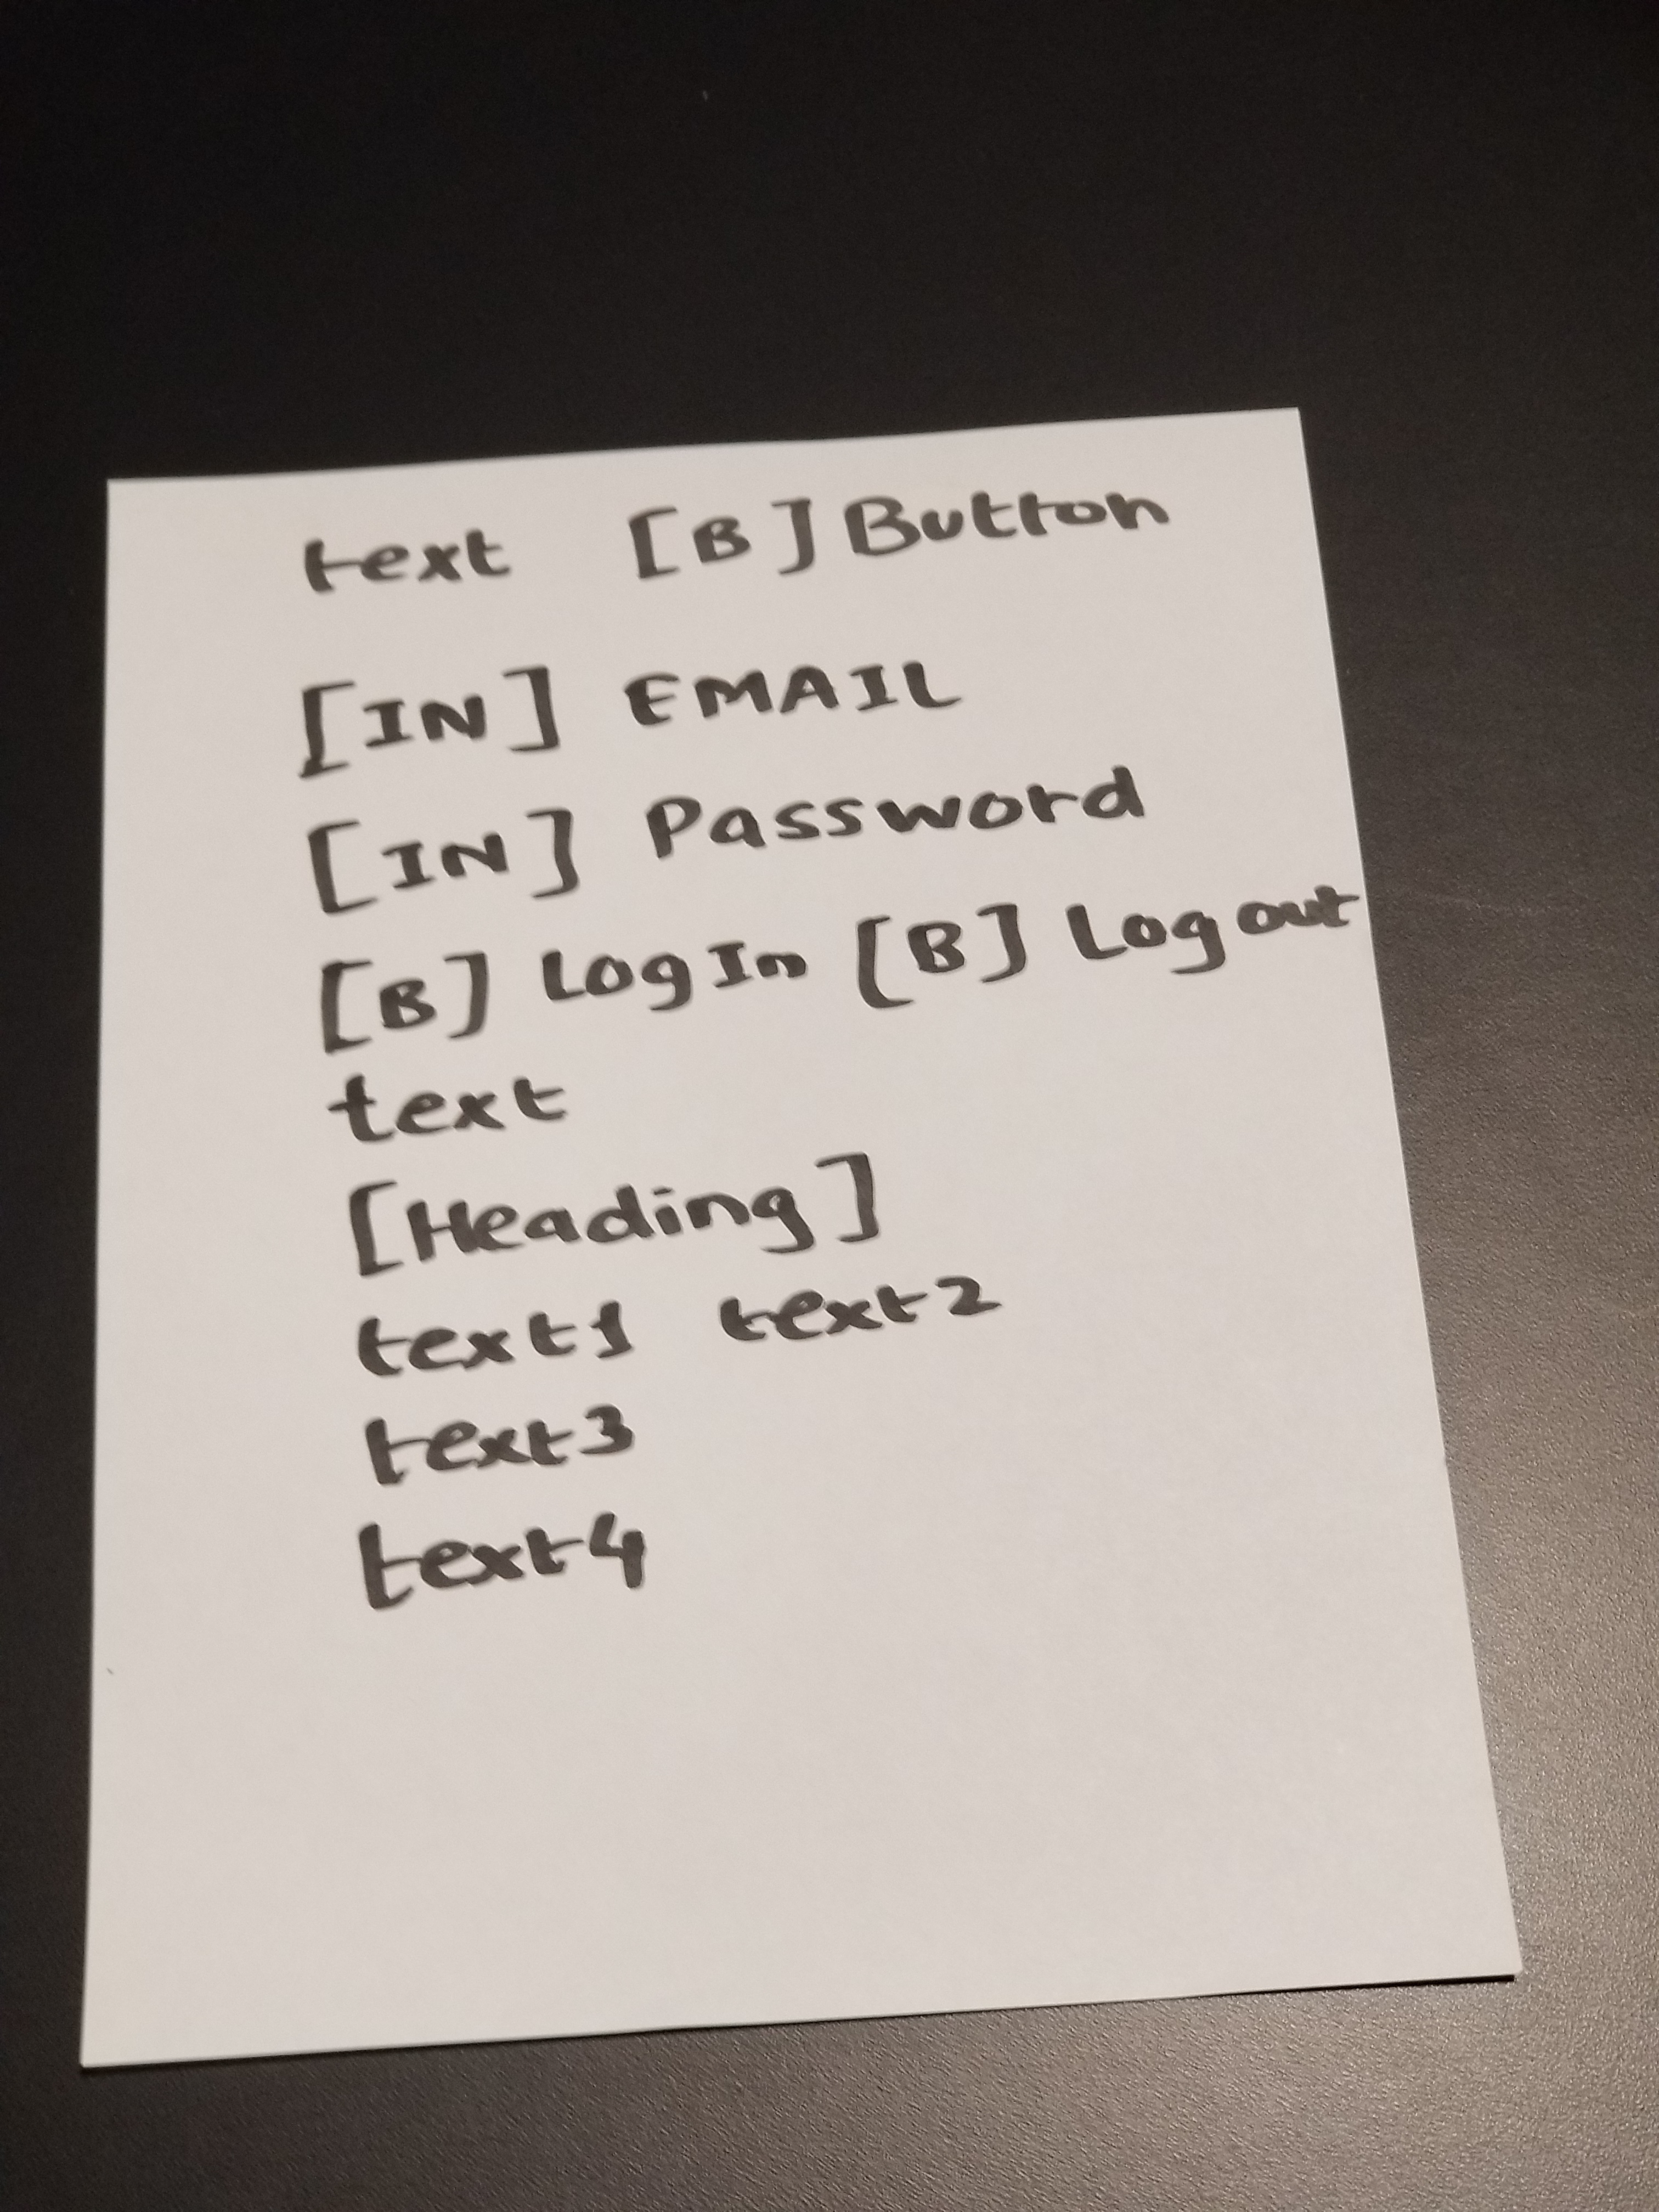 text [B] Button
[IN] EMAIL
[IN] Password
[B] Log In [B] Log out
text
[Heading]
text1 text2
text3
text4